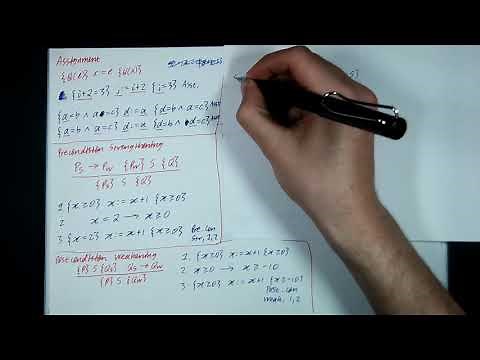 Assignment
{Q(e)} x := e {Q(x)}
{i+2=3} i := i+2 {i=3} Ass.
{a=b ∧ a=c} d := a {d=b ∧ a=c} Ass.
{a=b ∧ a=c} d := a {d=b ∧ d=c} Ass.
Precondition Strengthening
Ps → Pw {Pw} S {Q}
{Ps} S {Q}
1. {x≥0} x := x+1 {x≥0}
2 x=2 → x≥0
3. {x=2} x := x+1 {x≥0} Pre. Con
Str, 1,2
Postcondition Weakening
{P} S {Qs} Qs → Qw
{P} S {Qw}
1. {x≥0} x := x+1 {x≥0}
2 x≥0 → x≥-10
3. {x≥0} x := x+1 {x≥-10}
Post. Con
Weak. 1,2